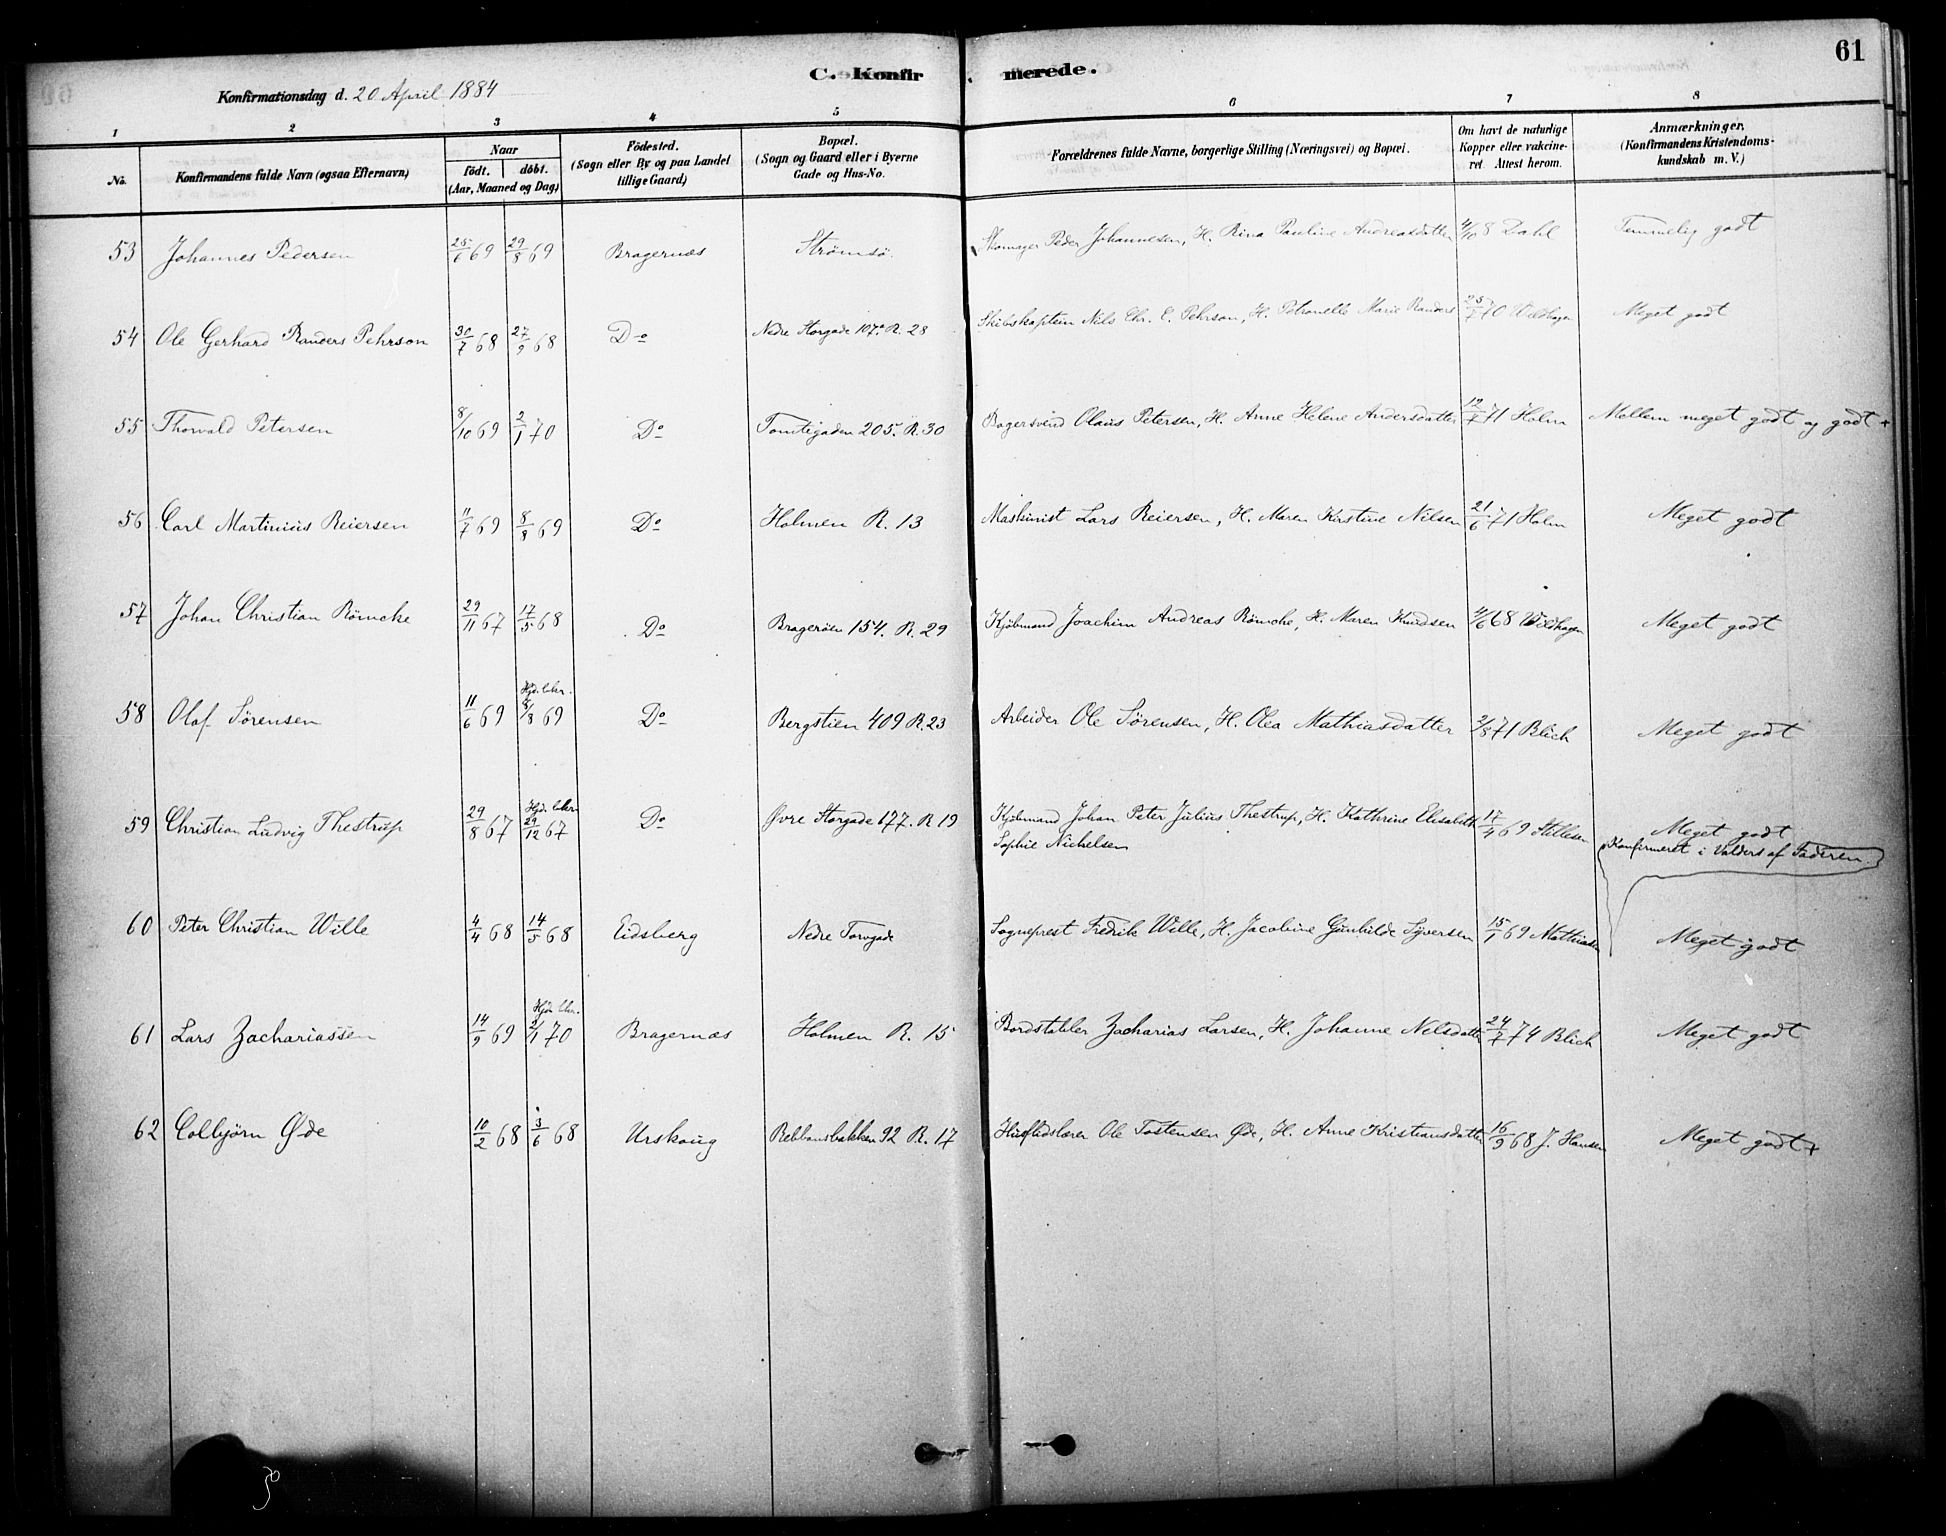 C. Konfir merede.
61
Konfirmationsdag d. 20 April 1884
1 2 3 4 5 6 7 8
No. Konfirmandens fulde Navn (ogsaa Efternavn) Naar født. døbt. (Aar, Maaned og Dag) Fødested. (Sogn eller By og paa Landet tillige Gaard) Bopæl. (Sogn og Gaard eller i Byerne Gade og Hus-No. Forældrenes fulde Navne, borgerlige Stilling (Næringsvei) og Bopæl. Om havt de naturlige Kopper eller vakcineret. Attest herom. Anmærkninger. (Konfirmandens Kristendomskundskab m. V.)
53 Johannes Pedersen 25/6 69 29/8 69 Bragernæs Strømsø. Skomager Peder Johannesen, H. Rina Pauline Andreasdatter 4/10 68 Dahl Temmelig godt
54 Ole Gerhard Randers Pehrson 30/7 68 27/9 68 Do Nedre Storgade 107a R. 28 Skibskaptein Nils Chr. E. Pehrson, H. Petronelle Marie Randers 25/7 70 Wildhagen Meget godt
55 Thorvald Petersen 8/10 69 2/1 70 Do Tomtegaden 205. R. 30 Bagersvend Olaus Petersen, H. Anne Helene Andersdatter 12/7 71 Holm Mellem meget godt og godt +
56 Carl Martinius Reiersen 11/7 69 8/8 69 Do Holmen R. 13 Maskinist Lars Reiersen, H. Maren Kirstine Nilsen 21/6 71 Holm Meget godt
57 Johan Christian Römcke 29/11 67 17/5 68 Do Bragerøen 154. R. 29 Kjøbmand Joachim Andreas Römcke, H. Maren Knudsen 4/6 68 Wildhagen Meget godt
58 Olaf Sørensen 11/6 69 Hjd. bekr. 8/8 69 Do Bergstien 409 R. 23 Arbeider Ole Sørensen, H. Olea Mathiasdatter 2/8 71 Blich Meget godt
59 Christian Ludvig Thestrup 29/8 67 Hjd. bekr. 29/12 67 Do Øvre Storgade 177. R 19 Kjøbmand Johan Peter Julius Thestrup, H. Kathrine Elisabeth 17/4 69 Stillesen Meget godt
Sophie Nichelsen
Konfirmeret i Valders af Faderen.
60 Peter Christian Wille 4/4 68 14/5 68 Eidsberg Nedre Torvgade Sogneprest Fredrik Wille, H. Jacobine Gunhilde Syversen 15/1 69 Mathiesen Meget godt
61 Lars Zachariassen 14/9 69 Hjd. bekr. 2/1 70 Bragernæs Holmen R. 15 Bordstabler Zacharias Larsen, H. Johanne Nelsdatter 24/7 74 Blich Meget godt
62 Colbjörn Øde 10/2 68 3/6 68 Urskoug Rebbansbakken 92 R. 17 Husflidslærer Ole Tostensen Øde, H. Anne Kristiansdatter 16/9 68 J. Hansen Meget godt +